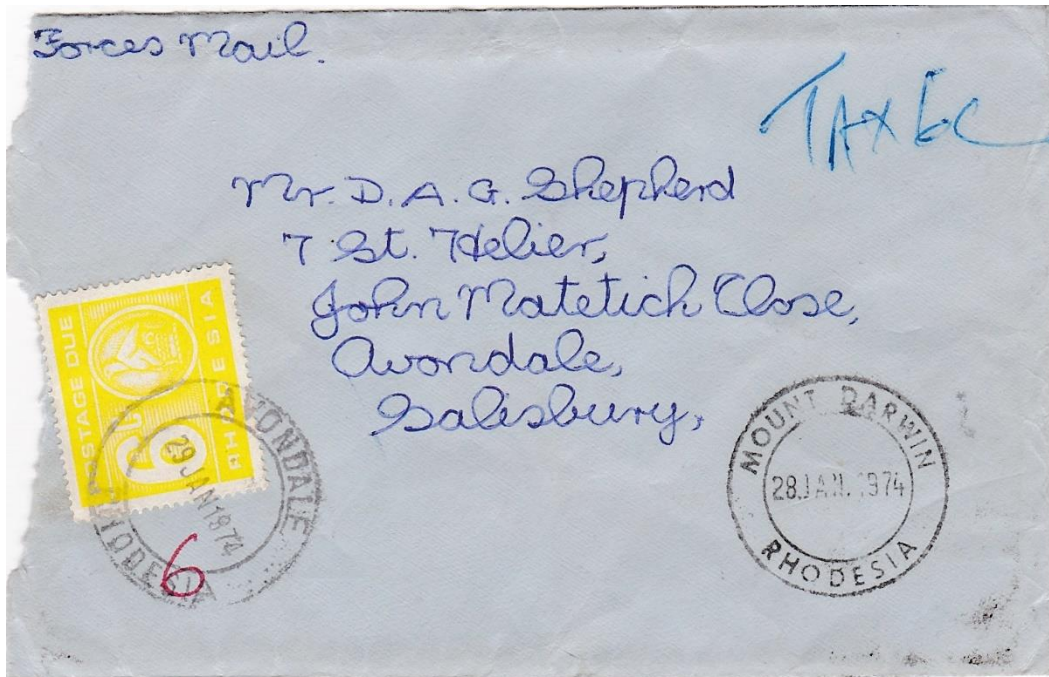 Forces Mail.
TAX 6c
Mr. D. A. G. Shepherd
7 St. Helier,
John Matetich Close,
Avondale,
Salisbury,
POSTAGE DUE
RHODESIA
6c
AVONDALE
29 JAN 1974
RHODESIA
6
MOUNT DARWIN
28 JAN. 1974
RHODESIA